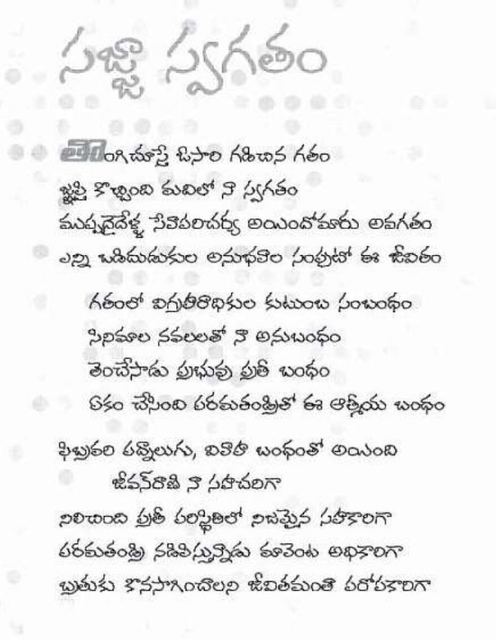 సజ్జా స్వగతం
తొంగిచూస్తే ఓసారి గడిచిన గతం
జ్ఞప్తి కొచ్చింది మదిలో నా స్వగతం
ముప్పదైదేళ్ళ సేవాపరిచర్య అయిందోమారు అవగతం
ఎన్ని ఒడిదుడుకుల అనుభవాల సంపుటో ఈ జీవితం
గతంలో విగ్రహారాధికుల కుటుంబ సంబంధం
సినిమాల నవలలతో నా అనుబంధం
తెంచేసాడు ప్రభువు ప్రతీ బంధం
ఏకం చేసింది పరమతండ్రితో ఈ ఆత్మీయ బంధం
ఫిబ్రవరి పద్నాలుగు, వివాహ బంధంతో అయింది
జీవన్‌రాణి నా సహచరిగా
నిలిచింది ప్రతీ పరిస్థితిలో నిజమైన సహకారిగా
పరమతండ్రి నడిపిస్తున్నాడు మావెంట అధికారిగా
బ్రతుకు కొనసాగించాలని జీవితమంతా పరోపకారిగా